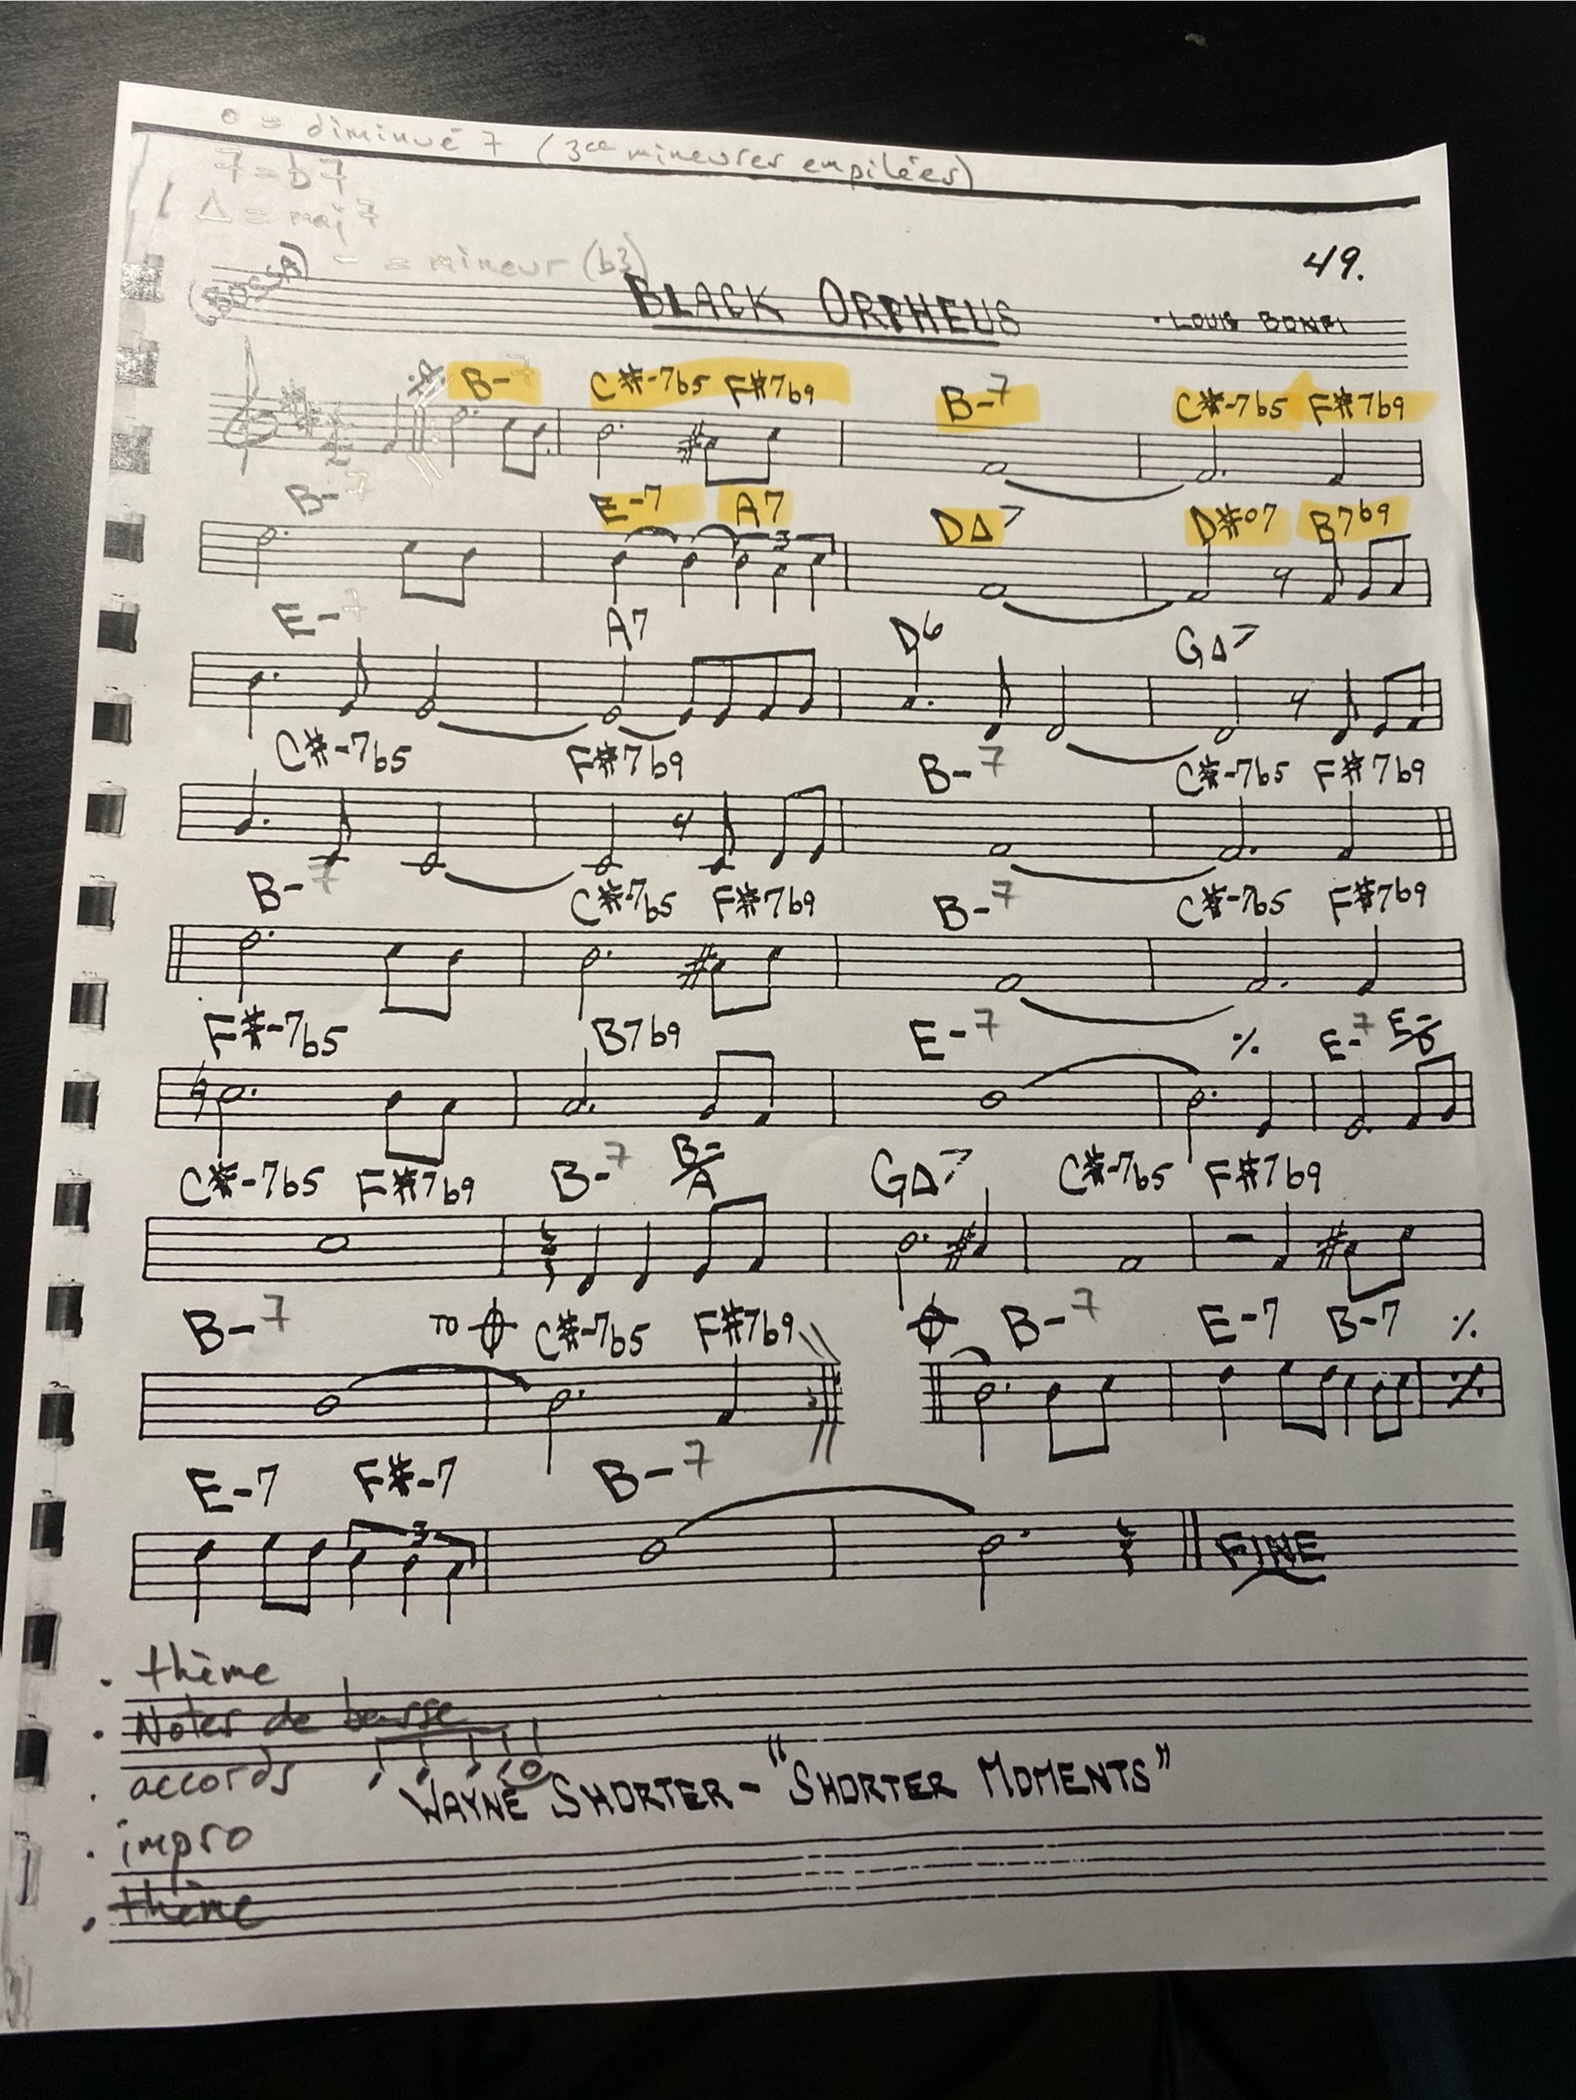 o = diminué 7 (3ces mineures empilées)
7 = b7
Δ = maj 7
- = mineur (b3)
49.
(BOSSA)
BLACK ORPHEUS
- LOUIS BONFI
B-7 C#-7b5 F#7b9 B-7 C#-7b5 F#7b9
B-7 E-7 A7 DΔ7 D#o7 B7b9
3
E-7 A7 D6 GΔ7
C#-7b5 F#7b9 B-7 C#-7b5 F#7b9
B-7 C#-7b5 F#7b9 B-7 C#-7b5 F#7b9
F#-7b5 B7b9 E-7 % E-7 E-/D
C#-7b5 F#7b9 B-7 B-/A GΔ7 C#-7b5 F#7b9
B-7 TO C#-7b5 F#7b9 B-7 E-7 B-7 %
E-7 F#-7 B-7
3
FINE
. thème
. Notes de basse
. accords
WAYNE SHORTER - "SHORTER MOMENTS"
. impro
. thème